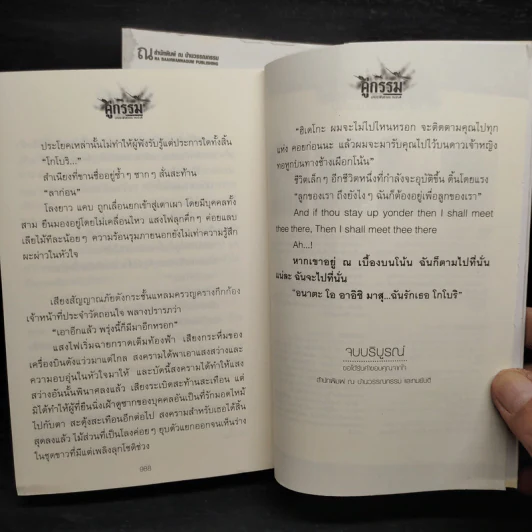 ณ สำนักพิมพ์ ณ บ้านวรรณกรรม
NA BAANWANNAGUM PUBLISHING
คู่กรรม
ประโยคเหล่านั้นไม่ทำให้ผู้ฟังรับรู้แต่ประการใดทั้งสิ้น
“โกโบริ...”
สำเนียงที่ขานชื่ออยู่ซ้ำๆ ซากๆ สั่นสะท้าน
“ลาก่อน”
โลงยาว แคบ ถูกเลื่อนยกเข้าสู่เตาเผา โดยมีบุคคลทั้ง
สาม ยืนมองอยู่โดยไม่เคลื่อนไหว แสงไฟลุกคึ่กๆ ค่อยแลบ
เลียไม้ทีละน้อยๆ ความร้อนรุมภายนอกยังไม่เท่าความรู้สึก
ผะผ่าวในหัวใจ
เสียงสัญญาณภัยดังกระชั้นแหลมครวญครางกึกก้อง
เจ้าหน้าที่ประจำวัดถอนใจ พลางปรารภว่า
“เอาอีกแล้ว พรุ่งนี้ก็มีมาอีกหรอก”
แสงไฟเริ่มฉายกราดเต็มท้องฟ้า เสียงกระหึ่มของ
เครื่องบินดังแว่วมาแต่ไกล สงครามได้พาเอาแสงสว่างและ
ความอบอุ่นในหัวใจมาให้ และบัดนี้สงครามได้ทำให้แสง
สว่างอันนั้นพินาศลงแล้ว เสียงระเบิดสะท้านสะเทือน แต่
มิได้ทำให้ผู้ที่ยืนนิ่งเฝ้าดูซากของบุคคลอันเป็นที่รักมอดไหม้
ไปกับตา สะดุ้งสะเทือนอีกต่อไป สงครามสำหรับเธอได้สิ้น
สุดลงแล้ว ไม้ส่วนที่เป็นโลงค่อยๆ ยุบตัวแยกออกจนเห็นร่าง
ในชุดขาวที่มีแต่เพลิงลุกโชติช่วง
คู่กรรม
“ฮิเดโกะ ผมจะไม่ไปไหนหรอก จะติดตามคุณไปทุก
แห่ง คอยก่อนนะ แล้วผมจะมารับคุณไปไว้บนดาวเจ้าหญิง
ทอหูกบนทางช้างเผือกโน้น”
ชีวิตเล็กๆ อีกชีวิตหนึ่งที่กำลังจะอุบัติขึ้น ดิ้นโดยแรง
“ลูกของเรา ถึงยังไงๆ ฉันก็ต้องอยู่เพื่อลูกของเรา”
And if thou stay up yonder then I shall meet
thee there, Then I shall meet thee there
Ah...!
หากเขาอยู่ ณ เบื้องบนโน้น ฉันก็ตามไปที่นั่น
แน่ละ ฉันจะไปที่นั่น
“อนาตะ โอ อาอิชิ มาสุ...ฉันรักเธอ โกโบริ”
จบบริบูรณ์
ขอได้รับคำขอบคุณจากใจ
สำนักพิมพ์ ณ บ้านวรรณกรรม